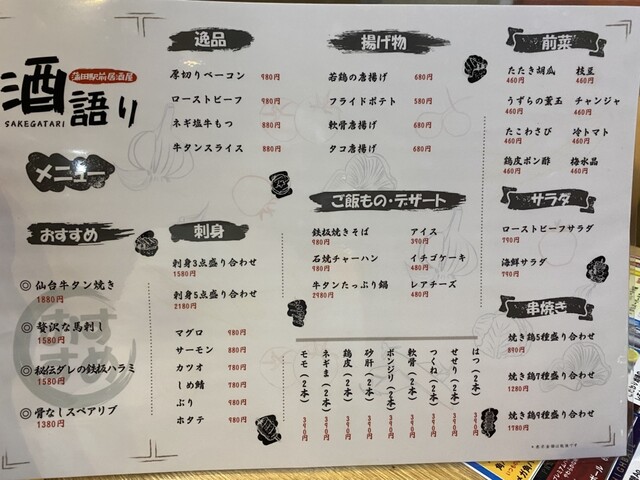 蒲田駅前居酒屋
酒語り
SAKEGATARI
メニュー
おすすめ
◎仙台牛タン焼き
1880円
◎贅沢な馬刺し
1580円
◎秘伝ダレの鉄板ハラミ
1580円
◎骨なしスペアリブ
1380円
おすすめ
逸品
厚切りベーコン 980円
ローストビーフ 980円
ネギ塩牛もつ 880円
牛タンスライス 880円
刺身
刺身3点盛り合わせ
1580円
刺身5点盛り合わせ
2180円
マグロ 980円
サーモン 880円
カツオ 780円
しめ鯖 780円
ぶり 980円
ホタテ 980円
揚げ物
若鶏の唐揚げ 680円
フライドポテト 580円
軟骨唐揚げ 680円
タコ唐揚げ 680円
ご飯もの・デザート
鉄板焼きそば
980円
石焼チャーハン
980円
牛タンたっぷり鍋
2980円
アイス
390円
イチゴケーキ
480円
レアチーズ
480円
はつ(2本) 390円
せせり(2本) 390円
つくね(2本) 390円
軟骨(2本) 390円
ボンジリ(2本) 390円
砂肝(2本) 390円
鶏皮(2本) 390円
ネギま(2本) 390円
モモ(2本) 390円
前菜
たたき胡瓜 枝豆
460円 460円
うずらの薫玉 チャンジャ
460円 460円
たこわさび 冷トマト
460円 460円
鶏皮ポン酢 梅水晶
460円 460円
サラダ
ローストビーフサラダ
790円
海鮮サラダ
790円
串焼き
焼き鶏5種盛り合わせ
890円
焼き鶏7種盛り合わせ
1280円
焼き鶏9種盛り合わせ
1780円
*表示金額は税抜です